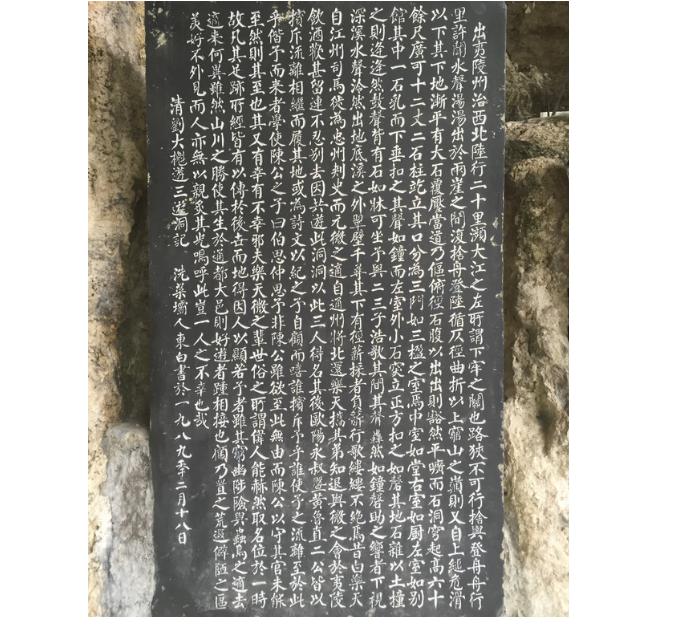 出夷陵州治西北陸行二十里瀕大江之左所謂下牢之關也路狹不可行捨輿登舟舟行
里許聞水聲湯湯出於兩崖之間復捨舟登陸循仄徑曲折以上窮山之巔則又自上縋危滑
以下其下地漸平有大石覆壓當道乃傴俯徑石腹以出出則豁然平曠而石洞穹起高六十
餘尺廣可十二丈二石柱屹立其口分為三門如三楹之室焉中室如堂右室如厨左室如別
館其中一石乳而下垂扣之其聲如鐘而左室外小石突立正方扣之如磬其地石雜以土撞
之則逄逄然鼓聲背有石如牀可坐予與二三子浩歌其間其聲轟然如鐘磬助之響者下視
深溪水聲泠然出地底溪之外翠壁千尋其下有徑薪採者負薪行歌縷縷不絕焉昔白樂天
自江州司馬徙為忠州刺史而元微之適自通州將北還樂天攜其弟知退與微之會於夷陵
飲酒歡甚留連不忍別去因共遊此洞洞以此三人得名其後歐陽永叔暨黃魯直二公皆以
擯斥流離相繼而履其地或為詩文以紀之予自顧而嘻誰擯斥予乎誰使予之流離至於此
乎偕予而來者學使陳公之子曰伯思仲思予非陳公雖欲至此無由而陳公以守其官未能
至然則其至也其又有幸有不幸邪夫樂天微之輩世俗之所謂偉人能赫然取名位於一時
故凡其足跡所經皆有以傳於後世而地得因人以顯若予者雖其窮幽陟險與蟲鳥之適去
適來何異雖然山川之勝使其生於通都大邑則好遊者踵相接也顧乃置之荒遐僻陋之區
美好不外見而人亦無以親炙其光嗚呼此豈一人之不幸也哉
清劉大櫆遊三遊洞記 洗壩人東白書於一九八九年二月十八日